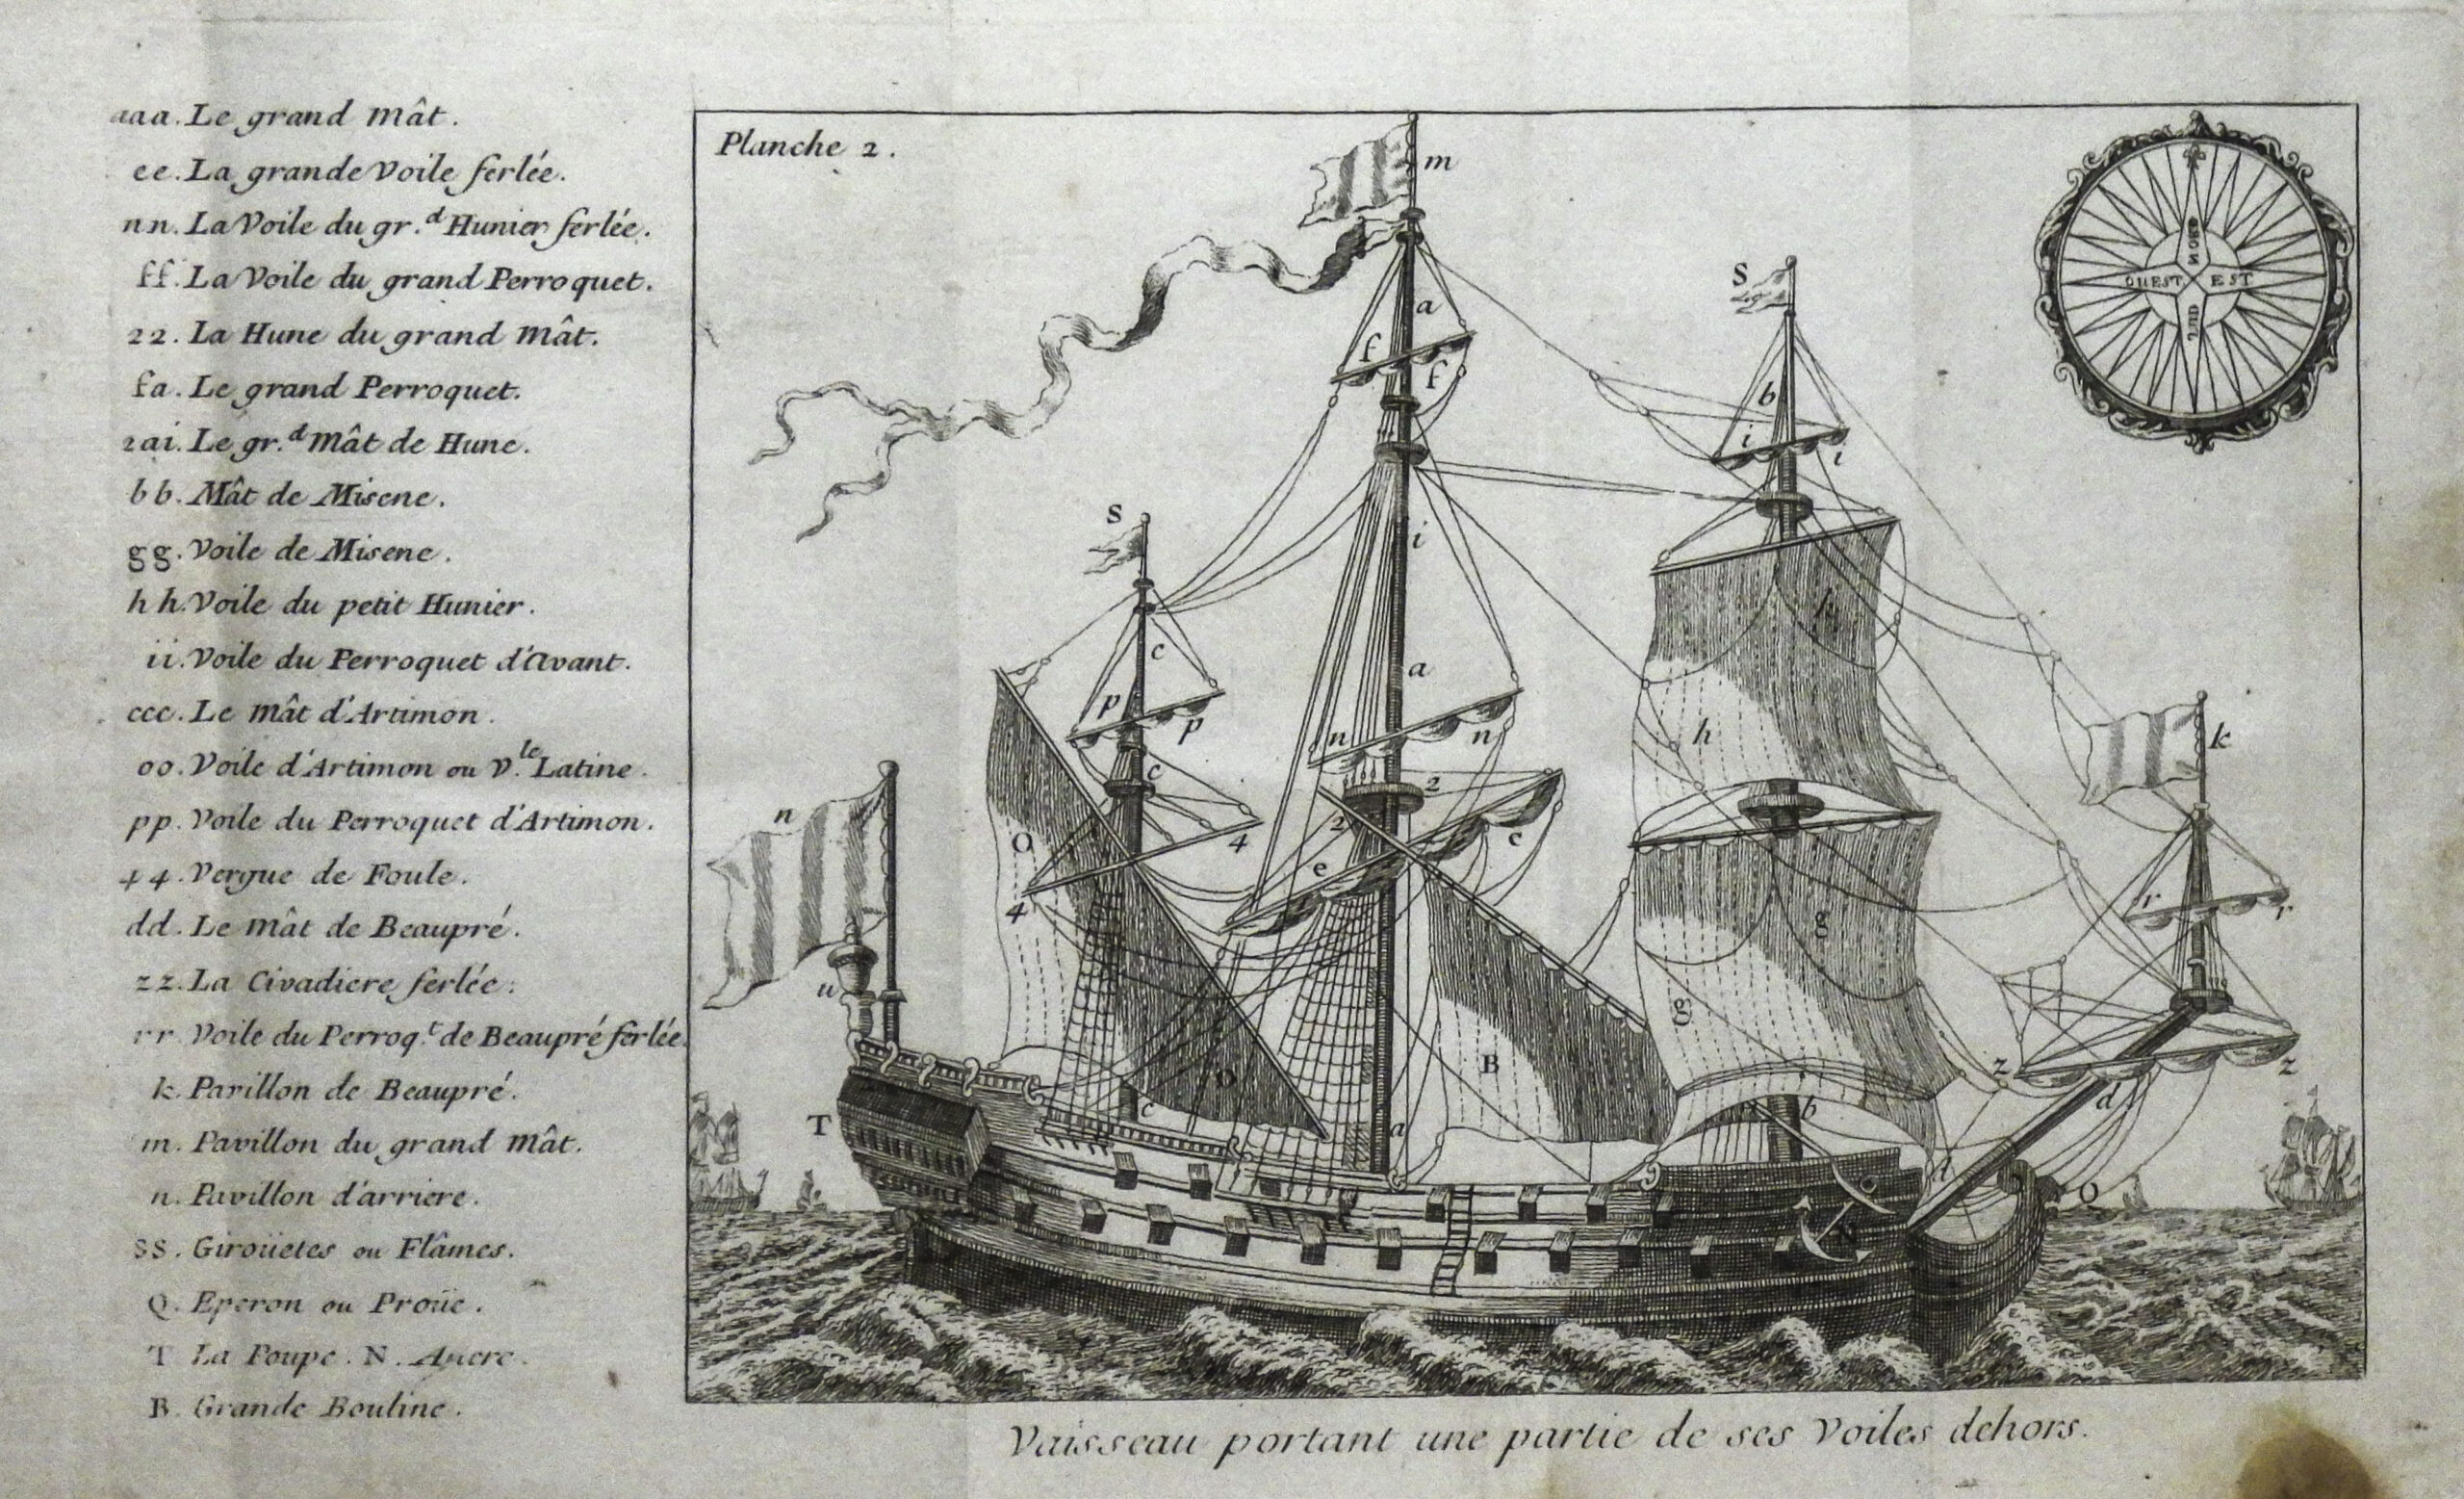 aaa. Le grand mât.
ee. La grande Voile ferlée.
nn. La Voile du gr.d Hunier ferlée.
ff. La Voile du grand Perroquet.
22. La Hune du grand mât.
fa. Le grand Perroquet.
2ai. Le gr.d mât de Hune.
bb. Mât de Misene.
gg. Voile de Misene.
hh. Voile du petit Hunier.
ii. Voile du Perroquet d'Avant.
ccc. Le mât d'Artimon.
oo. Voile d'Artimon ou V.le Latine.
pp. Voile du Perroquet d'Artimon.
44. Vergue de Foule.
dd. Le mât de Beaupré.
zz. La Civadiere ferlée.
rr. Voile du Perroq.t de Beaupré ferlée.
k. Pavillon de Beaupré.
m. Pavillon du grand mât.
n. Pavillon d'arriere.
SS. Giroüetes ou Flâmes.
Q. Eperon ou Proüe.
T La Poupe. N. Ancre.
B. Grande Bouline.
Planche 2.
m
S
NORD
OUEST EST
SUD
a
f
f
b
i
i
S
i
h
c
a
p
p
n
n
k
h
n
c
2
2
4
e
c
o
4
r
r
g
u
g
z
z
B
o
d
T
c
a
b
d
Q
N
Vaisseau portant une partie de ses Voiles dehors.